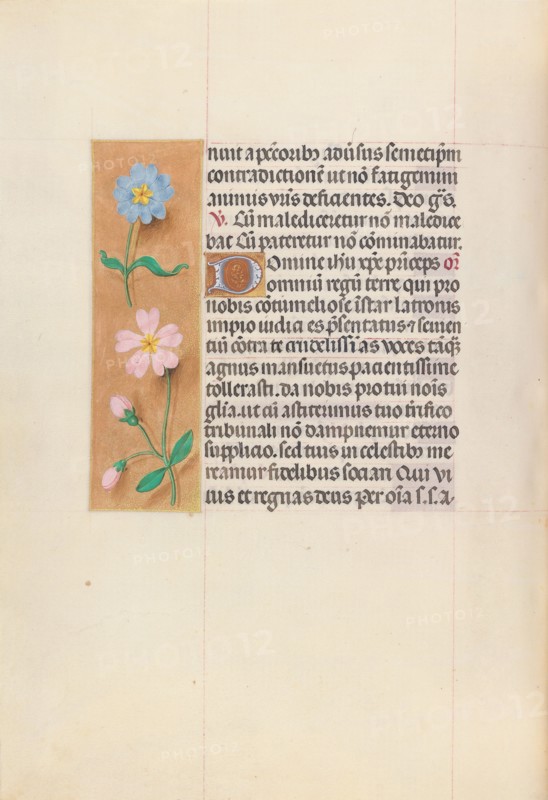 nuit a peccorib₉ adūsus semetip̄m
contradictionē ut nō fatigemini
animis vr̄is deficientes. Deo gr̄s.
℣. Cū malediceretur nō maledice
bat Cū pateretur nō cōminabatur.
Domine ih̄u xp̄e prīceps or̄
omniū regū terre qui pro
nobis cōtumeliose īstar latronis
impio iudici es p̄sentatus ⁊ seuien
tiū cōtra te crudelissīas voces tāq̄
agnus mansuetus pacientissime
tollerasti. da nobis pro tui noīs
gl̄ia. ut cū astiterimus tuo t̄rifico
tribunali nō dampnemur eterno
supplicio. sed tuis in celestib₉ me
reamur fidelibus sociari Qui vi
uis et regnas deus Per oīa s. s. a.
PHOTO12